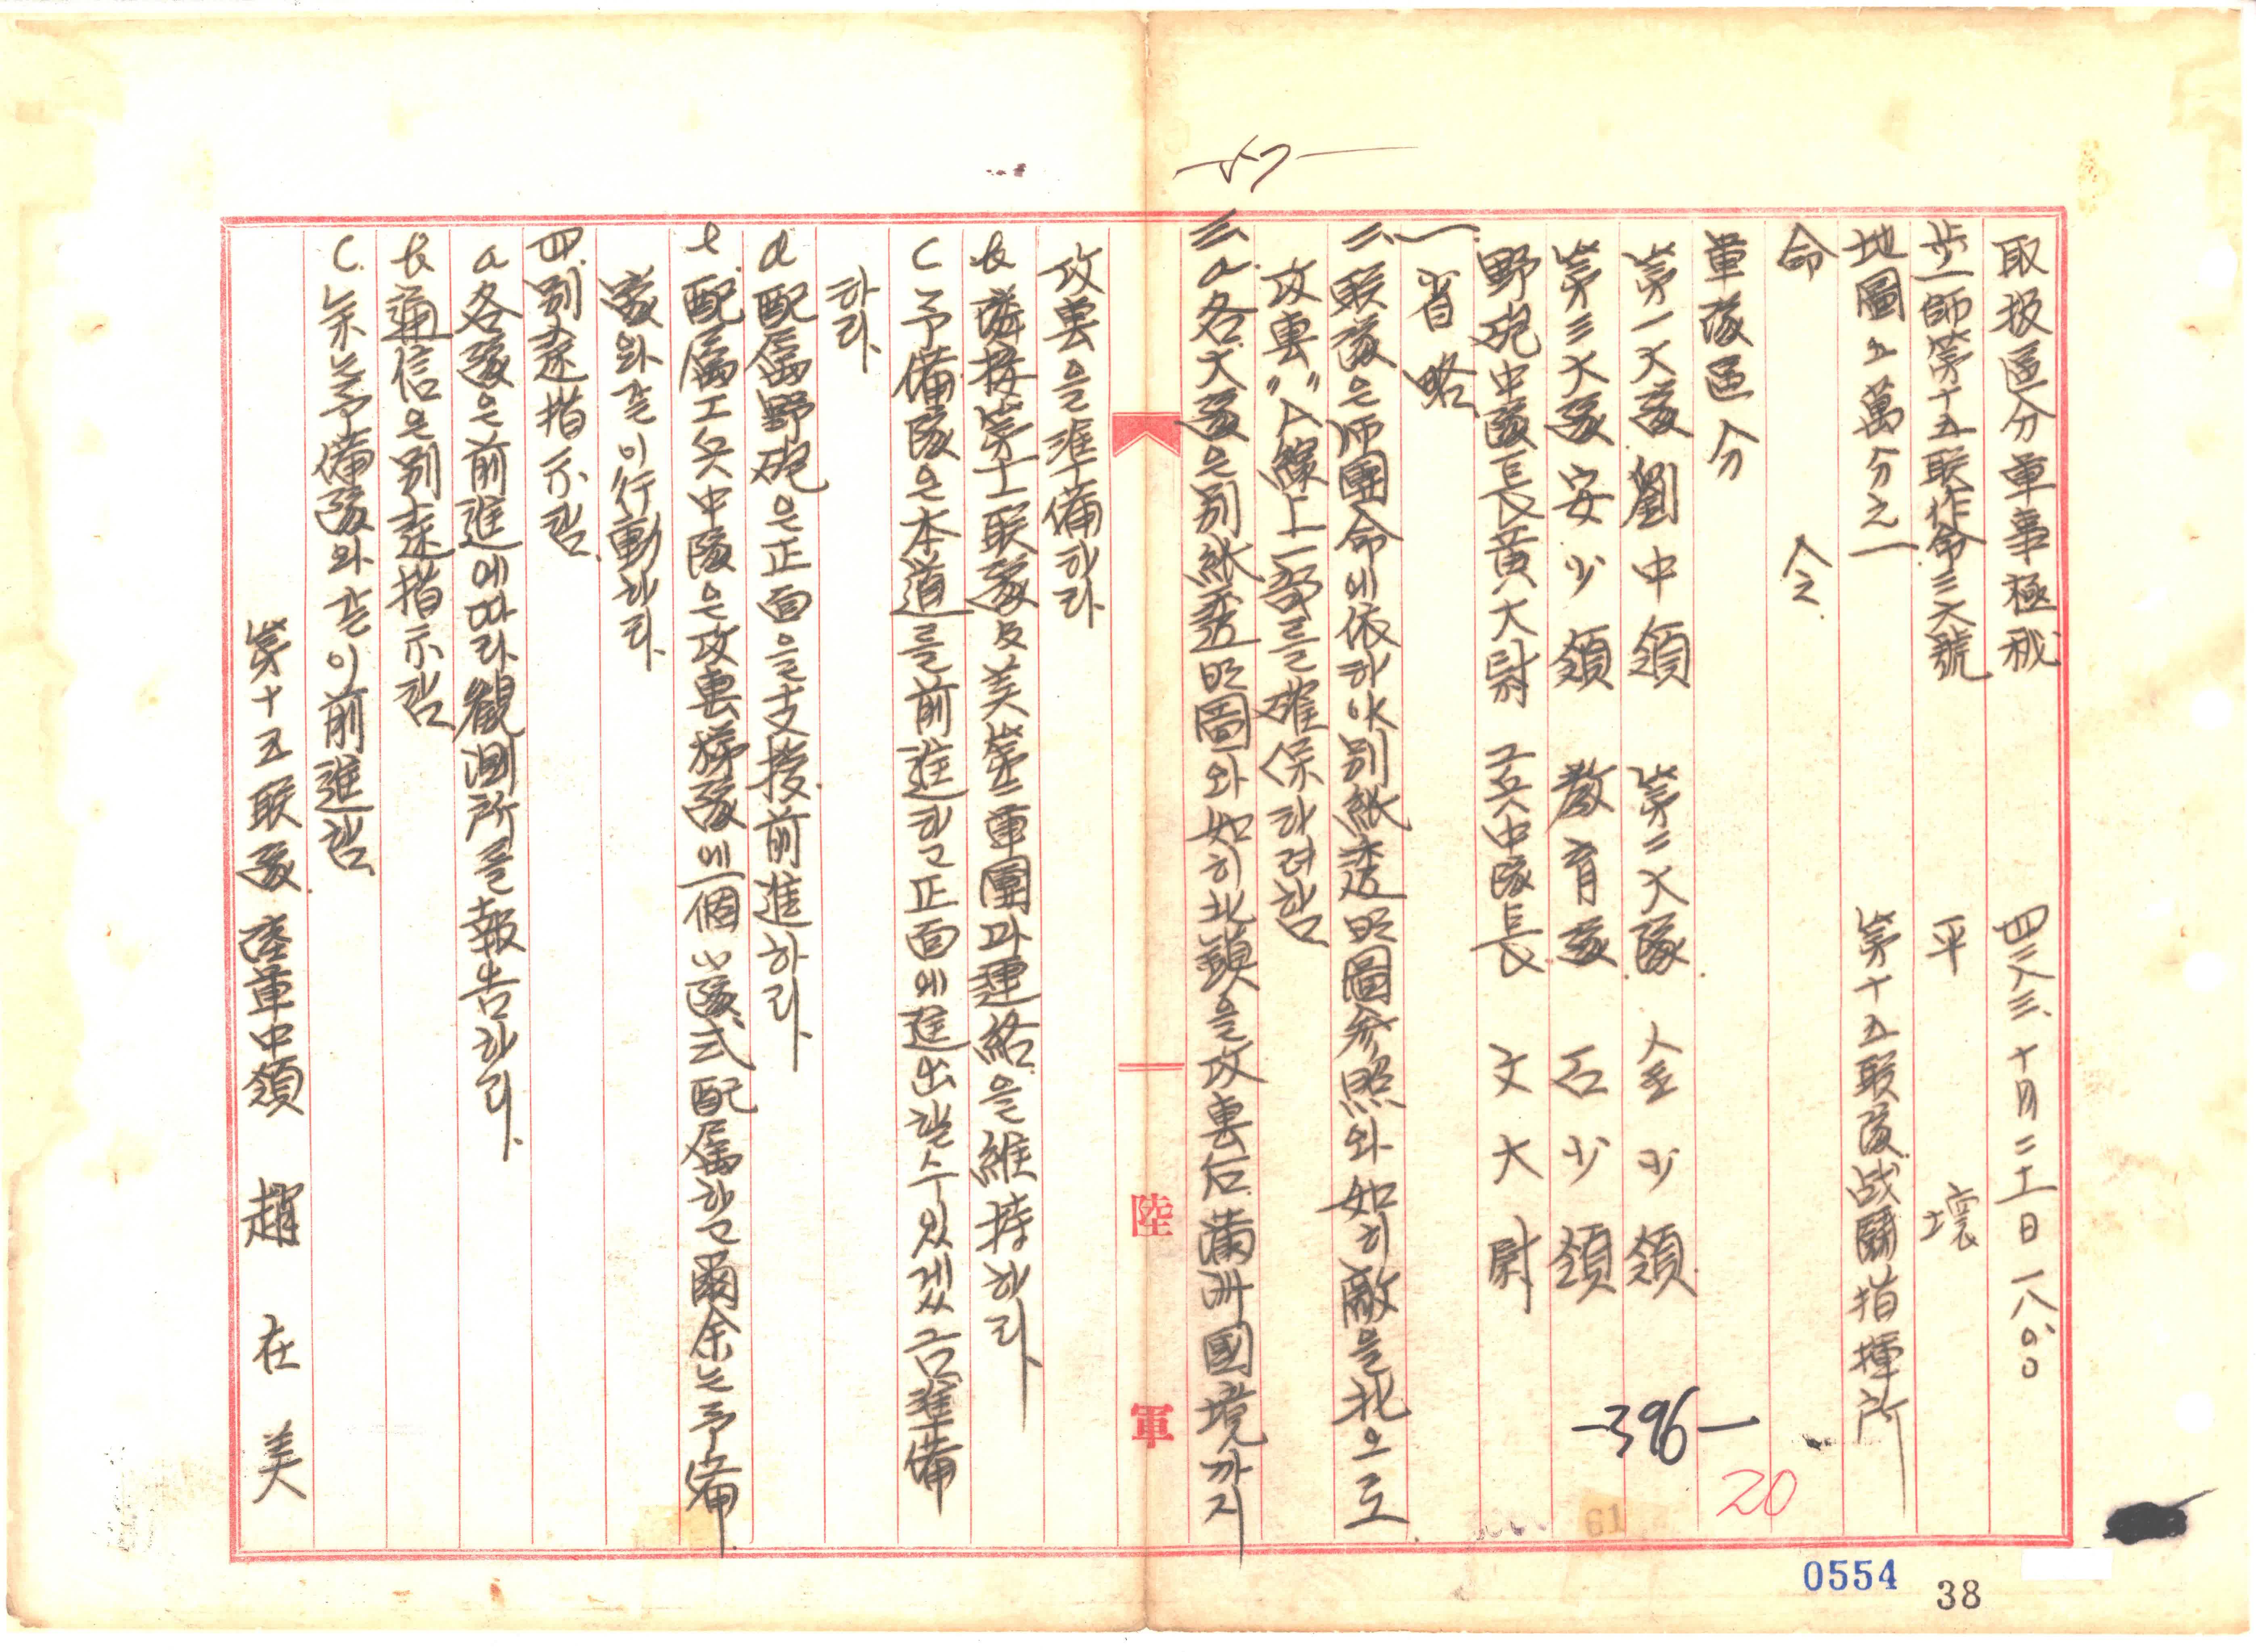 取扱區分軍事極秘 四二八三、十月二十一日一八〇〇
步一師第十五联作命三六號 平壤
地圖五萬分之一 第十五联隊战闘指揮所
命令
軍隊區分
第一大隊 劉中領 第二大隊 金少領
第三大隊 安少領 教育隊 石少領
野砲中隊長 黃大尉 工兵中隊長 文大尉
一. 省略
二. 联隊은 师團命에 依하야 別紙透明圖参照와 如히 敵을 北으로
攻䡖 〃A線上一部를 確保하려함
三. a. 各大隊은 別紙透明圖와 如히 北鎮을 攻䡖后 滿洲國境까지
攻䡖을 準備하라
b 隣接第十一联隊及美第一軍團과 連絡을 維持하라
c 予備隊은 本道를 前進하고 正面에 進出할수있겠금 準備
하라
d 配属野砲은 正面을 支援前進하라
e 配属工兵中隊은 攻䡖梯隊에 一個小隊式配属하고 爾余는 予備
隊와 같이 行動하라
四. 別途指示함
a 各隊은 前進에 따라 観測所를 報告하라
b 通信은 別途指示함
c. 余는 予備隊와 같이 前進함
第十五联隊長 陸軍中領 趙在美
-57-
陸軍
-396-
20
61
0554
38